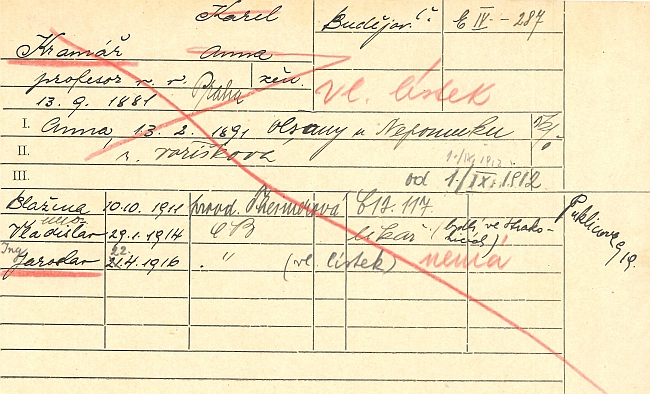 Karel Budějov. č. E IV - 287
Kramář Anna
profesor v. v. Praha žen.
13. 9. 1881 vl. lístek
I. Anna, 13. 2. 1891 Olšany u Nepomuku
II. r. Voříšková 1/IX. 1912
III. od 1./IX. 1912
Blažena 10.10. 1911 provd. Č13. 117.
Vladislav 29.1. 1914 ČB lékař (bydlí ve Strakonicích)
Ing. 22.
Jaroslav 21.4. 1916 " (vl. lístek) nemá